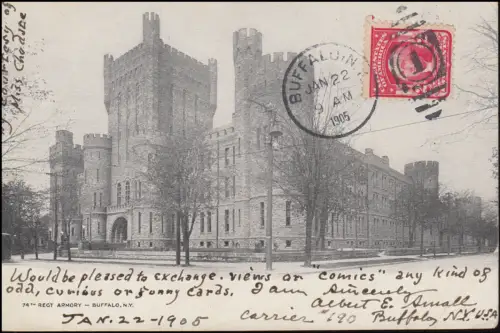 Courtesy of
Miss Cheddse
BUFFALO, N.Y.
JAN 22
9 AM
1905
1
Would be pleased to exchange. views or "comics" any kind of
odd, curious or funny cards. I am Sincerely
74TH REGT ARMORY — BUFFALO, N.Y.
Albert E. Small
JAN. 22 - 1905
Carrier #90 Buffalo N.Y. USA